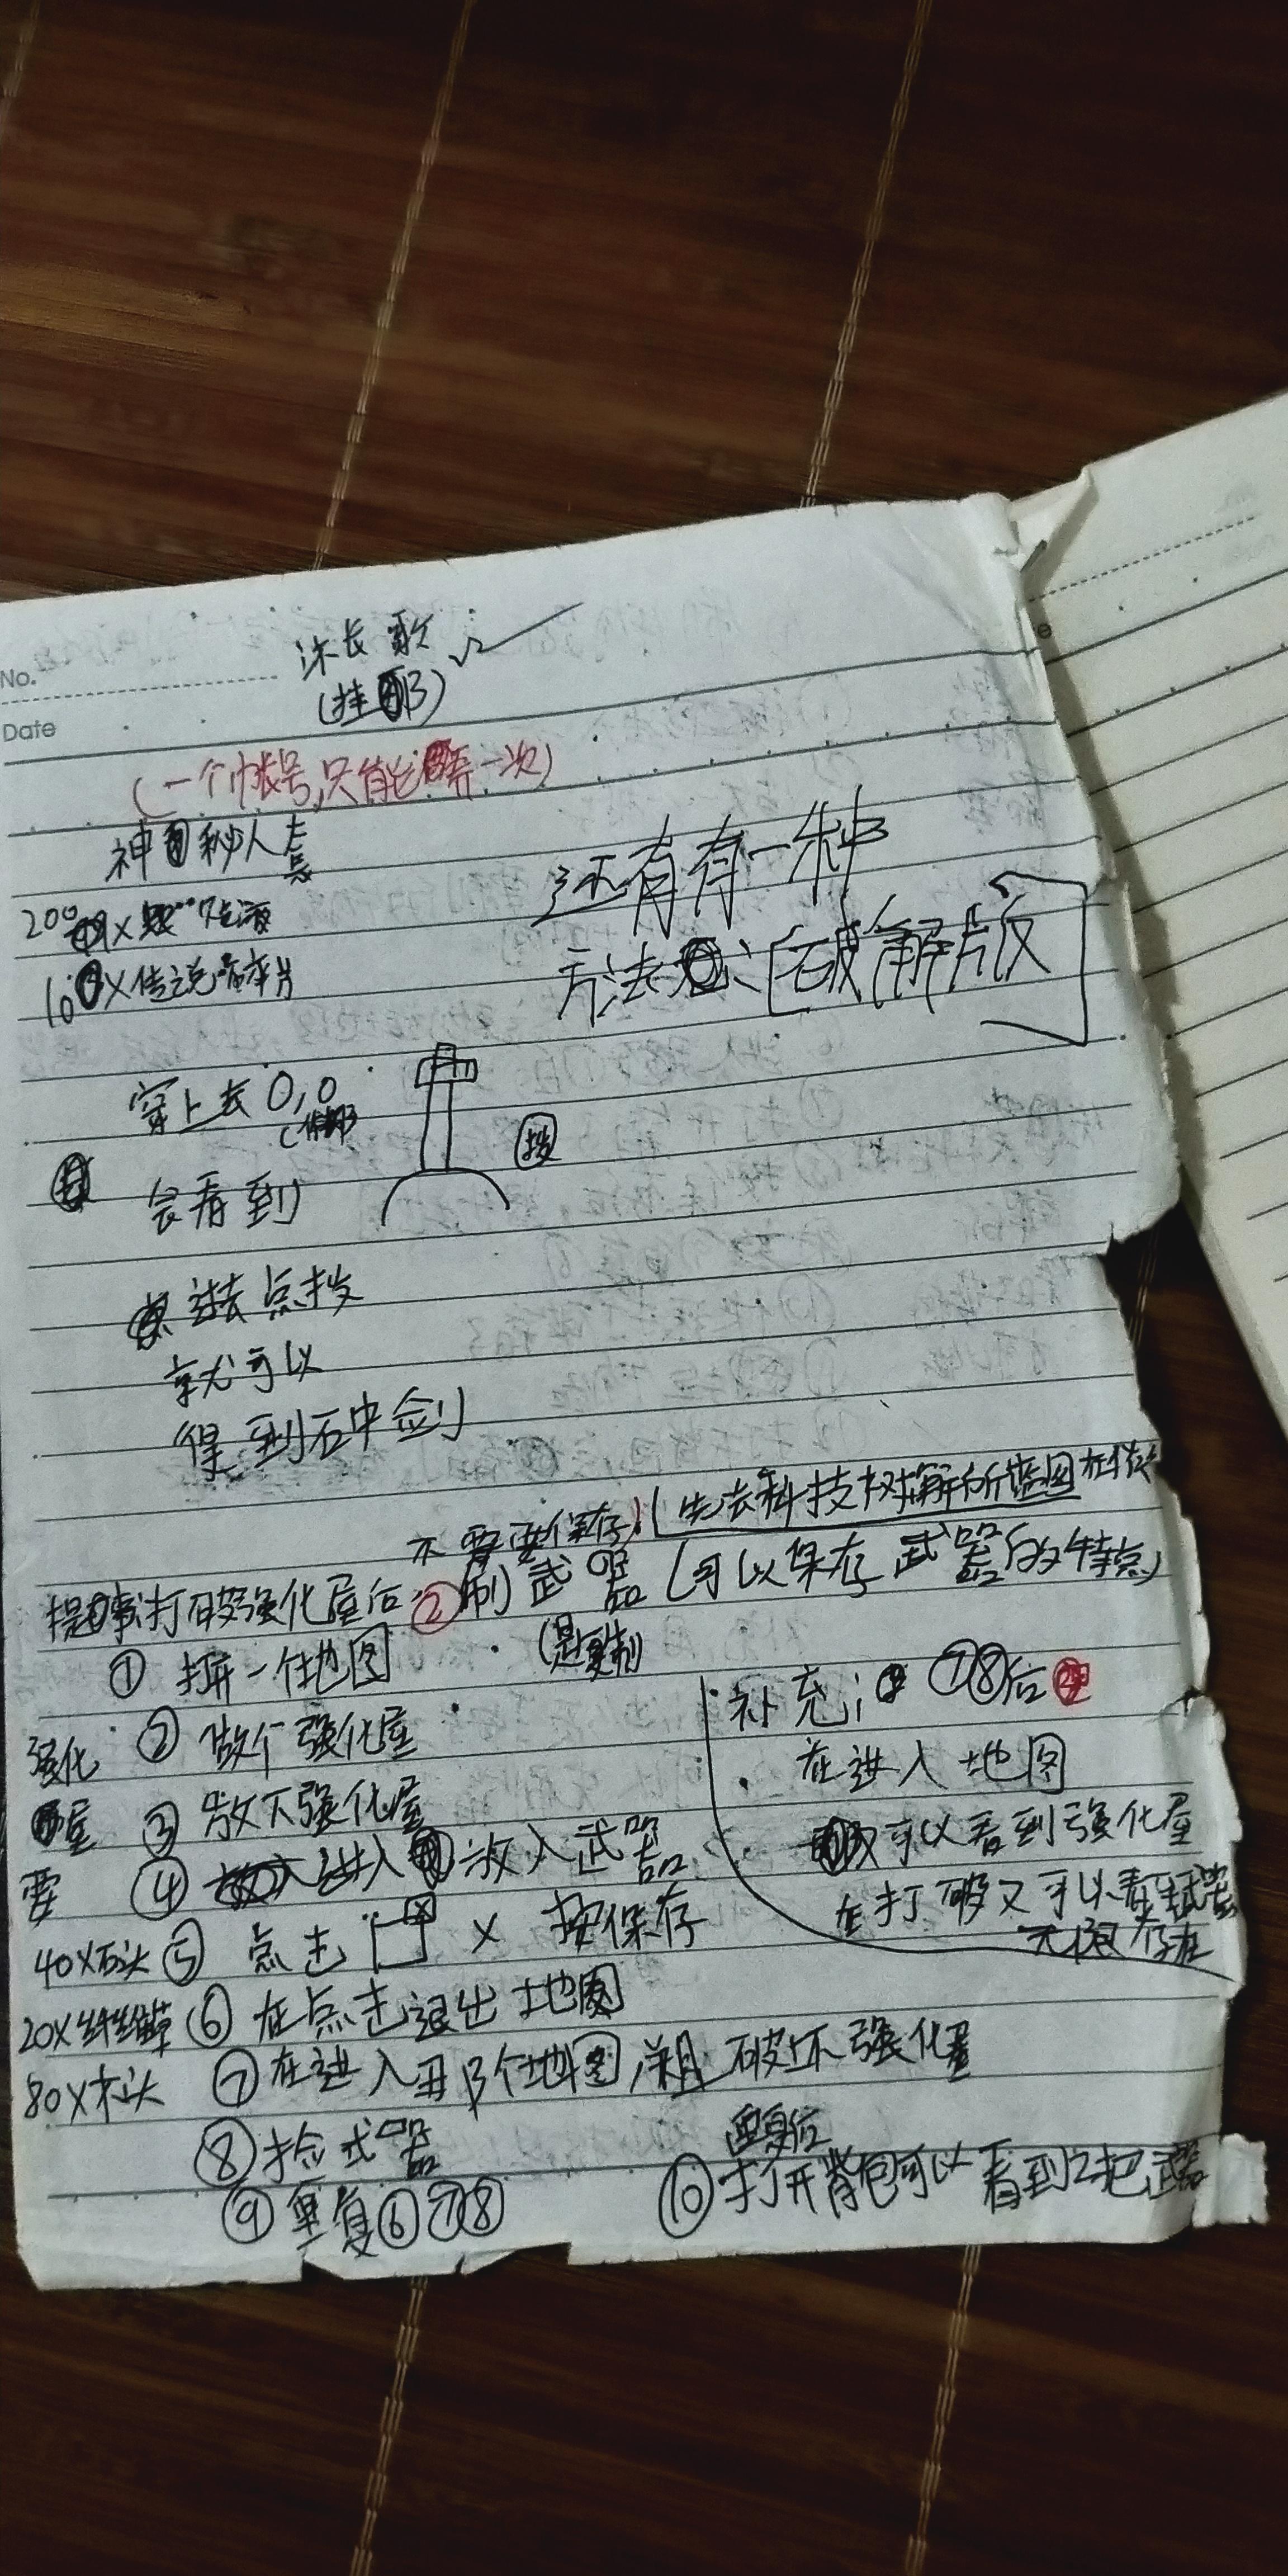 No.
Date
沐长歌
(一个帐号,只能弄一次)
神秘人套
200
100X传说碎片
还有有一种
方法:[破解版]
穿上去0,0
会看到
拔
进去点拔
就可以
得到石中剑
不需要保存!(先去科技树解析蓝图
打破强化屋后 ②刷武器(可以保存武器的特点)
(是复制)
① 打开一个地图
② 做个强化屋
③ 放下强化屋
④ 进入放入武器
⑤ 点击 X 按保存
⑥ 在点击退出地图
⑦ 在进入那个地图,破坏强化屋
⑧ 捡武器
⑨ 重复⑥⑦⑧
⑩ 打开背包可以看到2把武器
强化
屋
要
40X石头
20X纤维草
80X木头
补充: ⑦⑧后
在进入地图
可以看到强化屋
在打破又可以
无限存在